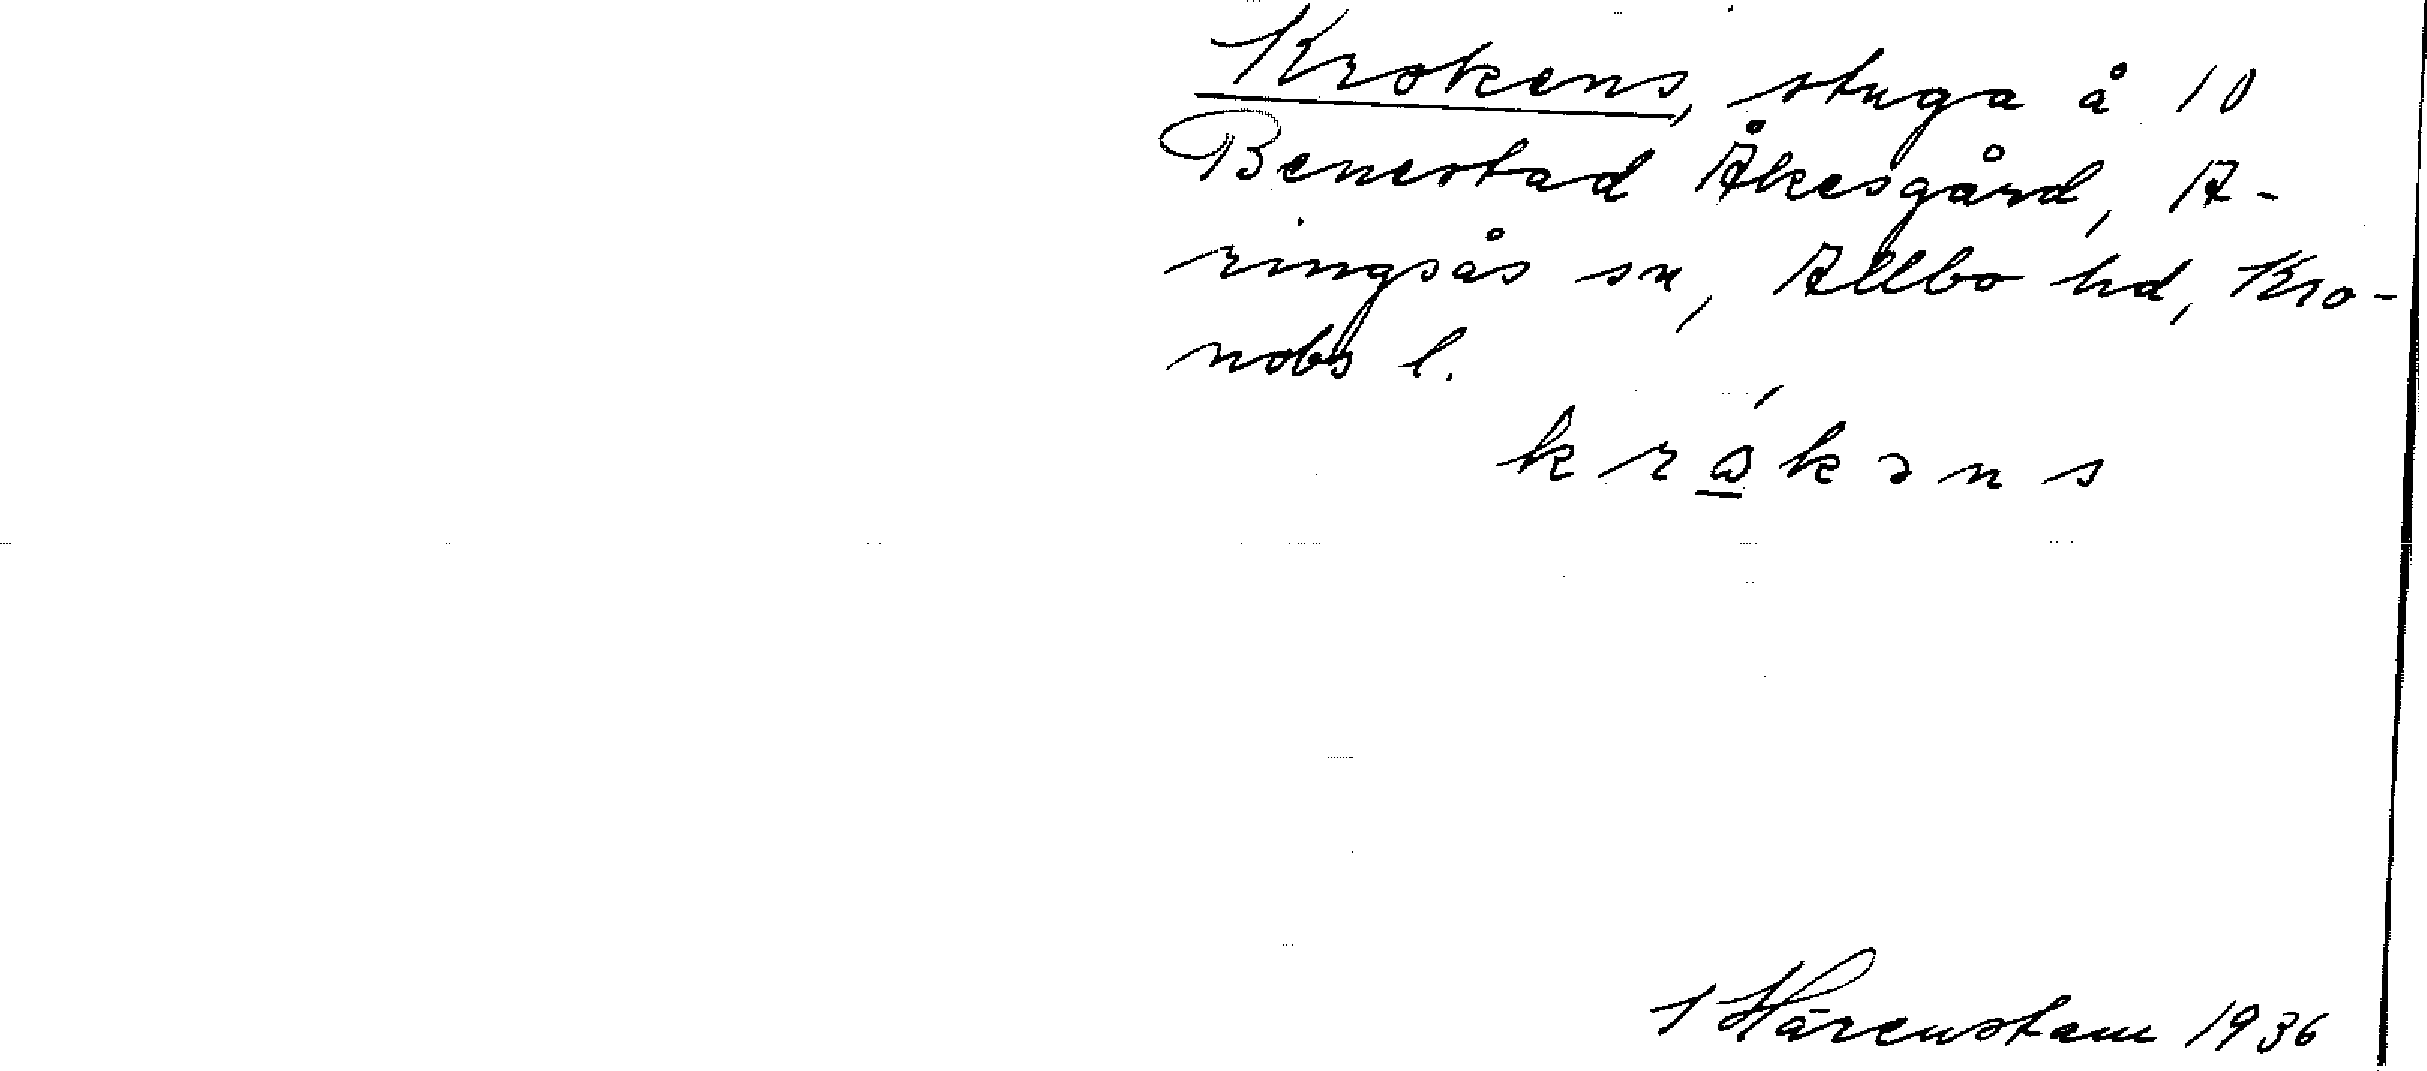 Krokens, stuga å 10
Benestad Åkesgård, A-
ringsås sn, Allbo hd, Kro-
nobs l.
krωkəns
J Härenstam 1936